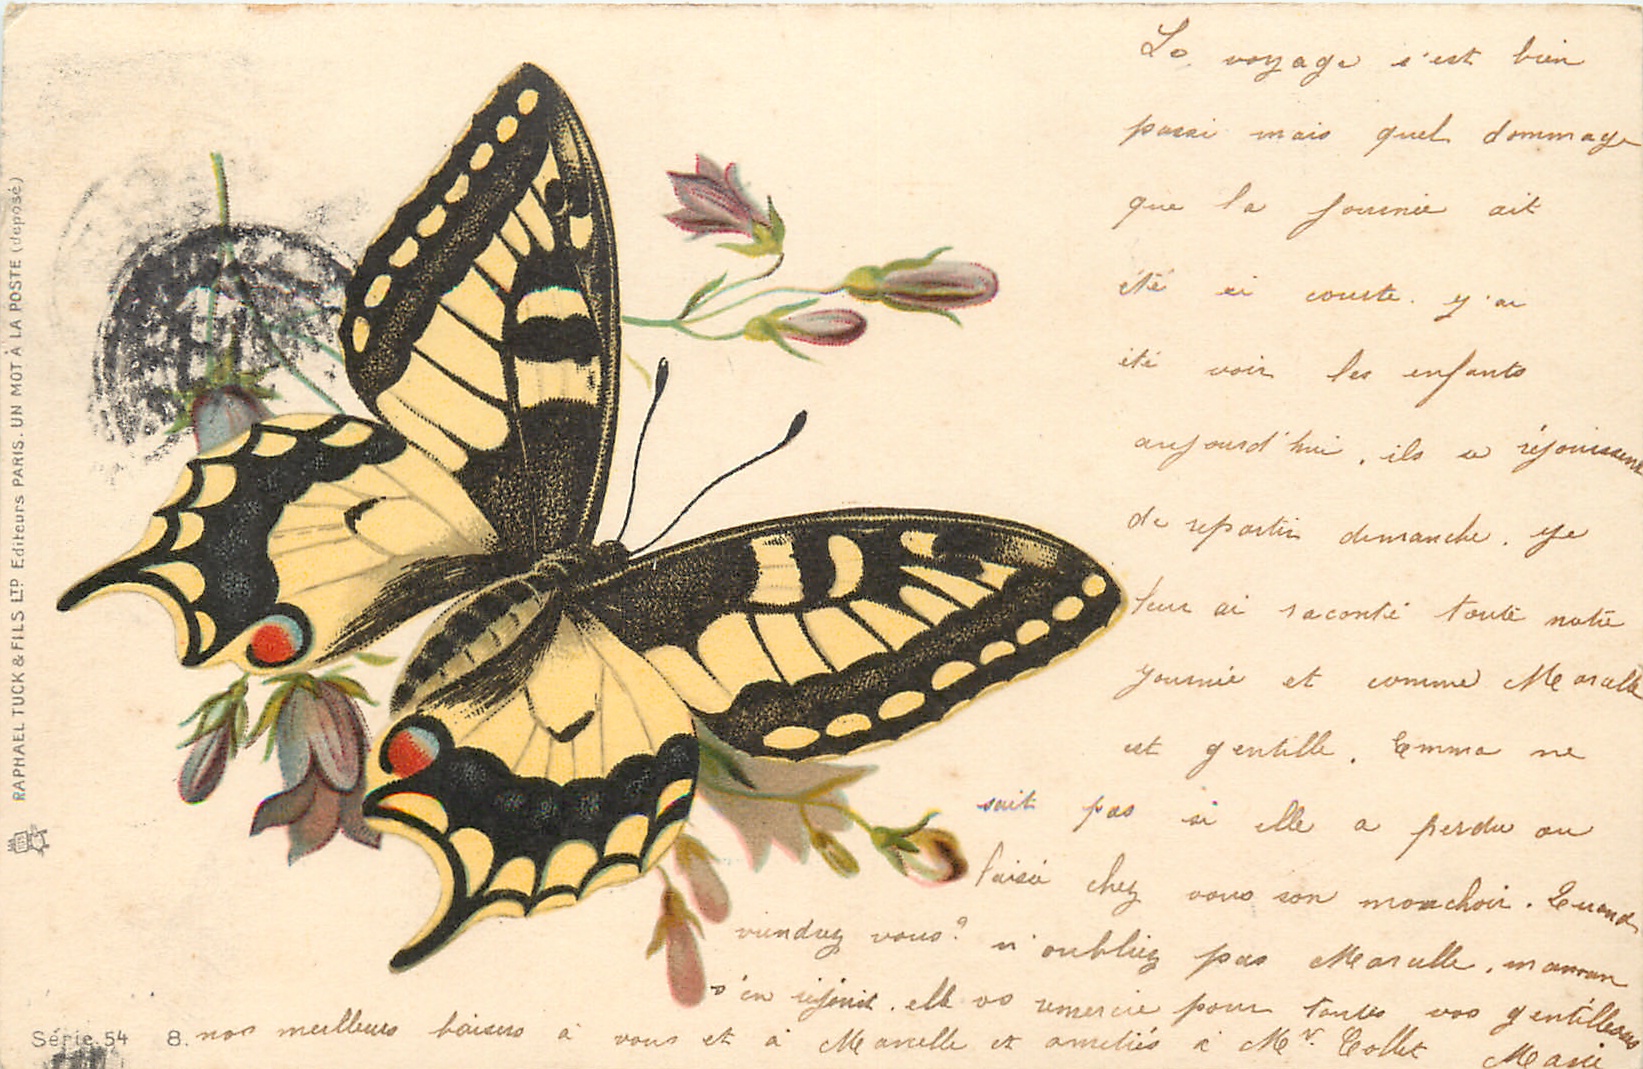 Le voyage s'est bien
passé mais quel dommage
que la journée ait
été si courte. J'ai
été voir les enfants
aujourd'hui, ils se réjouissent
de repartir dimanche. Je
leur ai raconté toute notre
journée et comme Marcelle
est gentille. Emma ne
sait pas si elle a perdu ou
laissé chez vous son mouchoir. Quand
viendrez vous? n'oubliez pas Marcelle, maman
s'en réjouit. elle vs remercie pour toutes vos gentillesses
nos meilleurs baisers à vous et à Marcelle et amitiés à Mr. Collet Marie
Série 54 8.
RAPHAEL TUCK & FILS LTD Editeurs PARIS. UN MOT À LA POSTE (déposé)